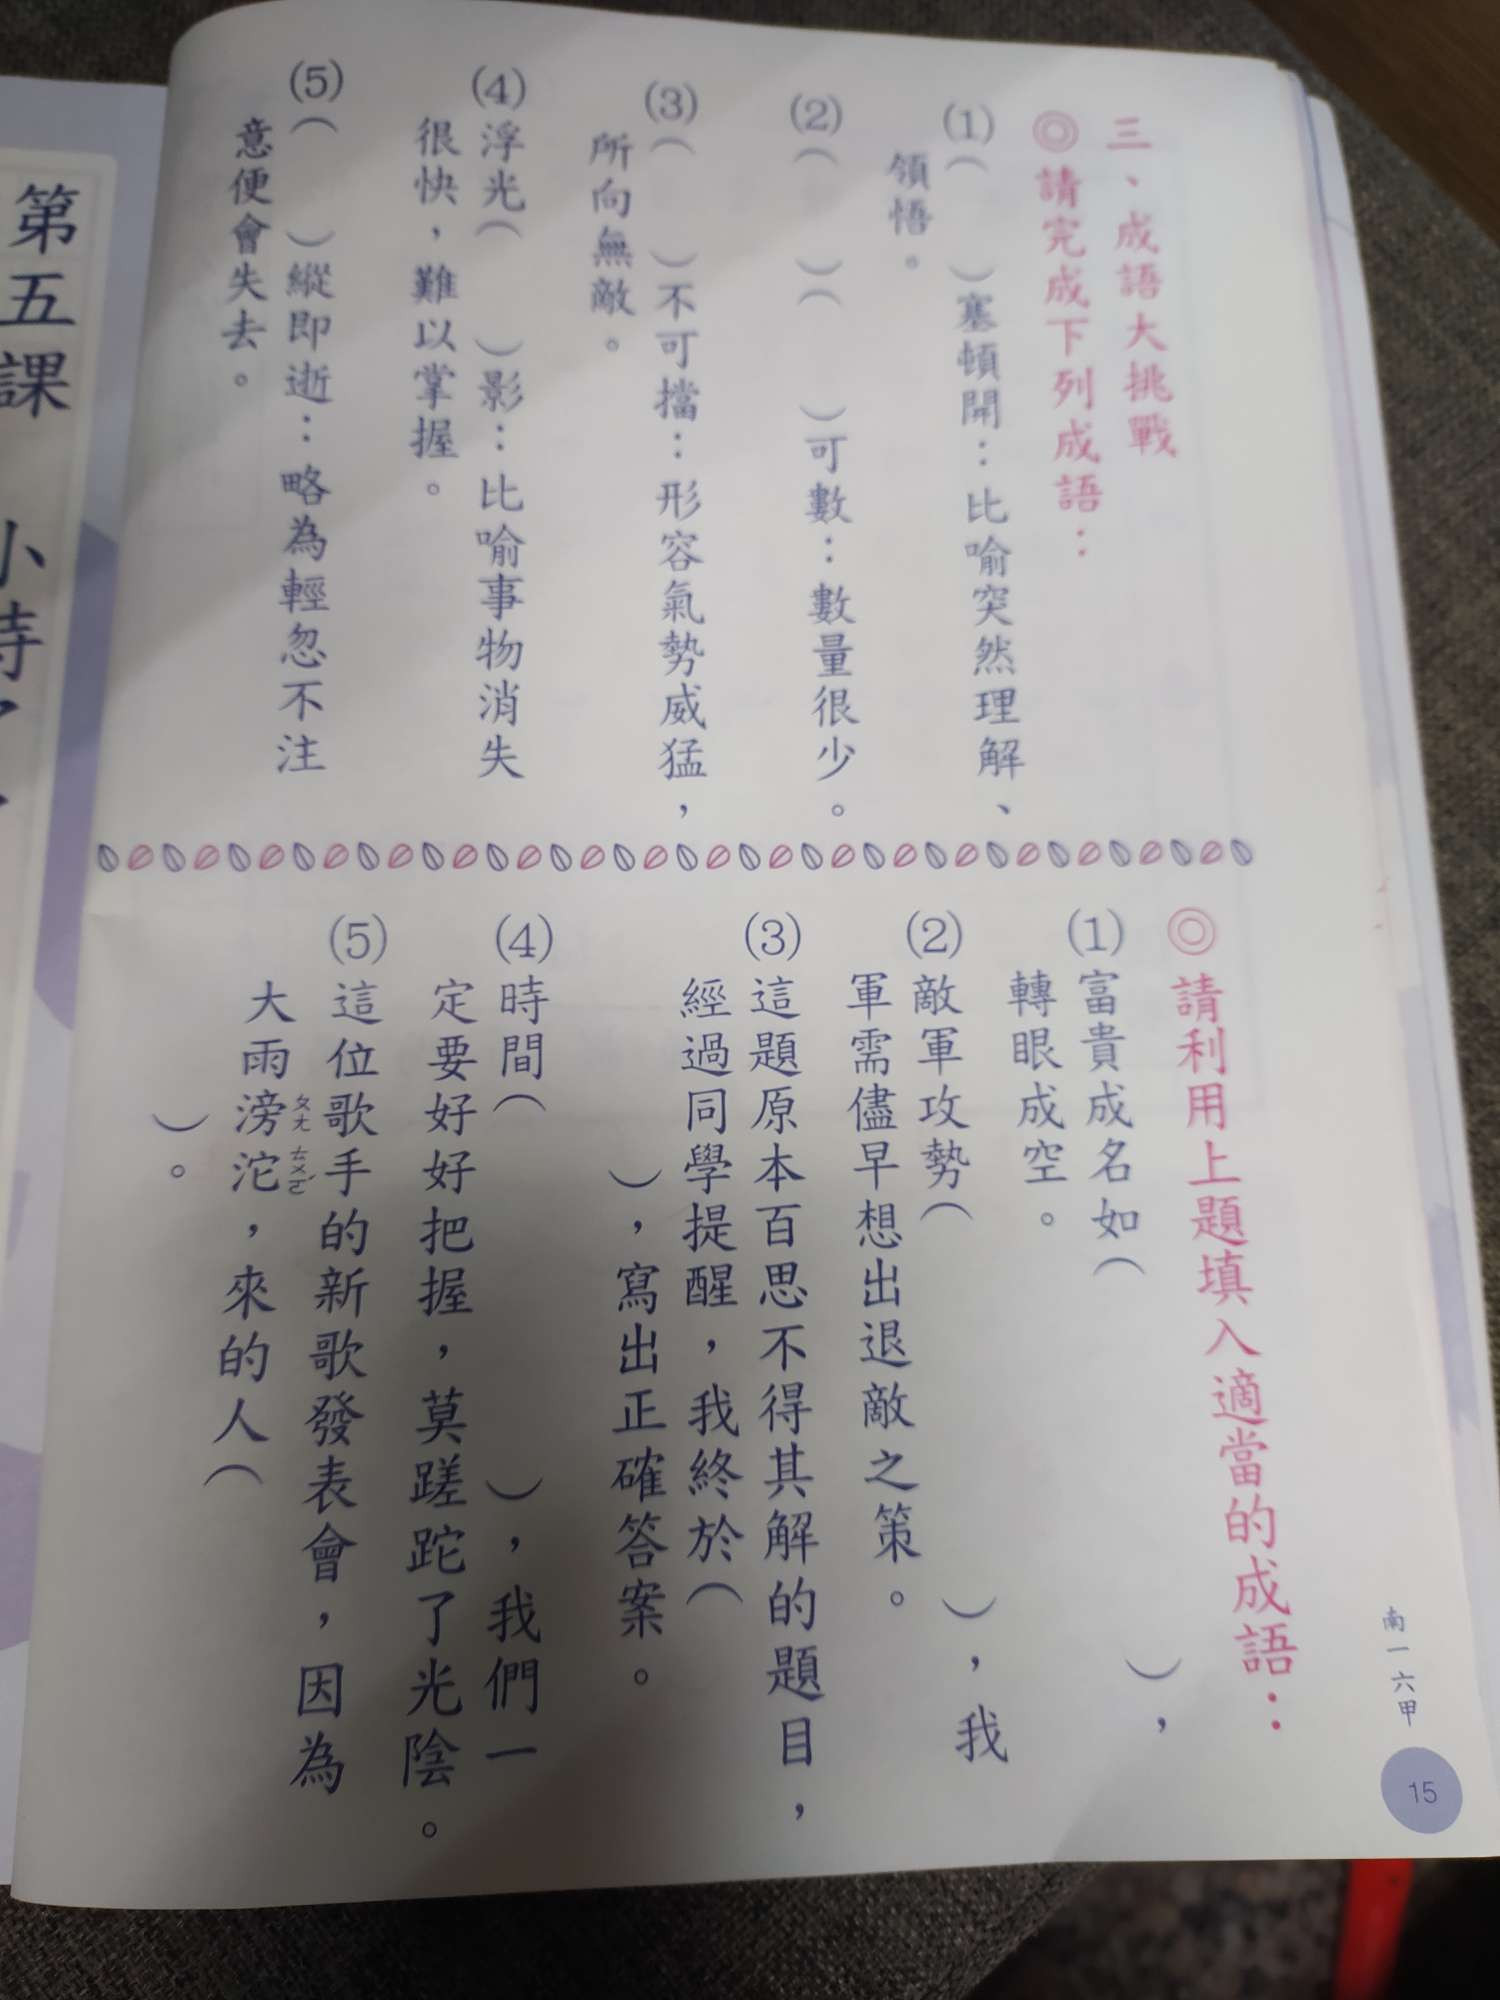 三、成語大挑戰
◎請完成下列成語：
(1)（　　）塞頓開：比喻突然理解、
領悟。
(2)（　　）（　　）可數：數量很少。
(3)（　　）不可擋：形容氣勢威猛，
所向無敵。
(4)浮光（　　）影：比喻事物消失
很快，難以掌握。
(5)（　　）縱即逝：略為輕忽不注
意便會失去。
◎請利用上題填入適當的成語：
(1)富貴成名如（　　　　），
轉眼成空。
(2)敵軍攻勢（　　　　），我
軍需儘早想出退敵之策。
(3)這題原本百思不得其解的題目，
經過同學提醒，我終於（
　　　　），寫出正確答案。
(4)時間（　　　　），我們一
定要好好把握，莫蹉跎了光陰。
(5)這位歌手的新歌發表會，因為
大雨滂沱，來的人（
ㄆㄤ ㄊㄨㄛˊ
　　　　）。
南一六甲
15
第五課